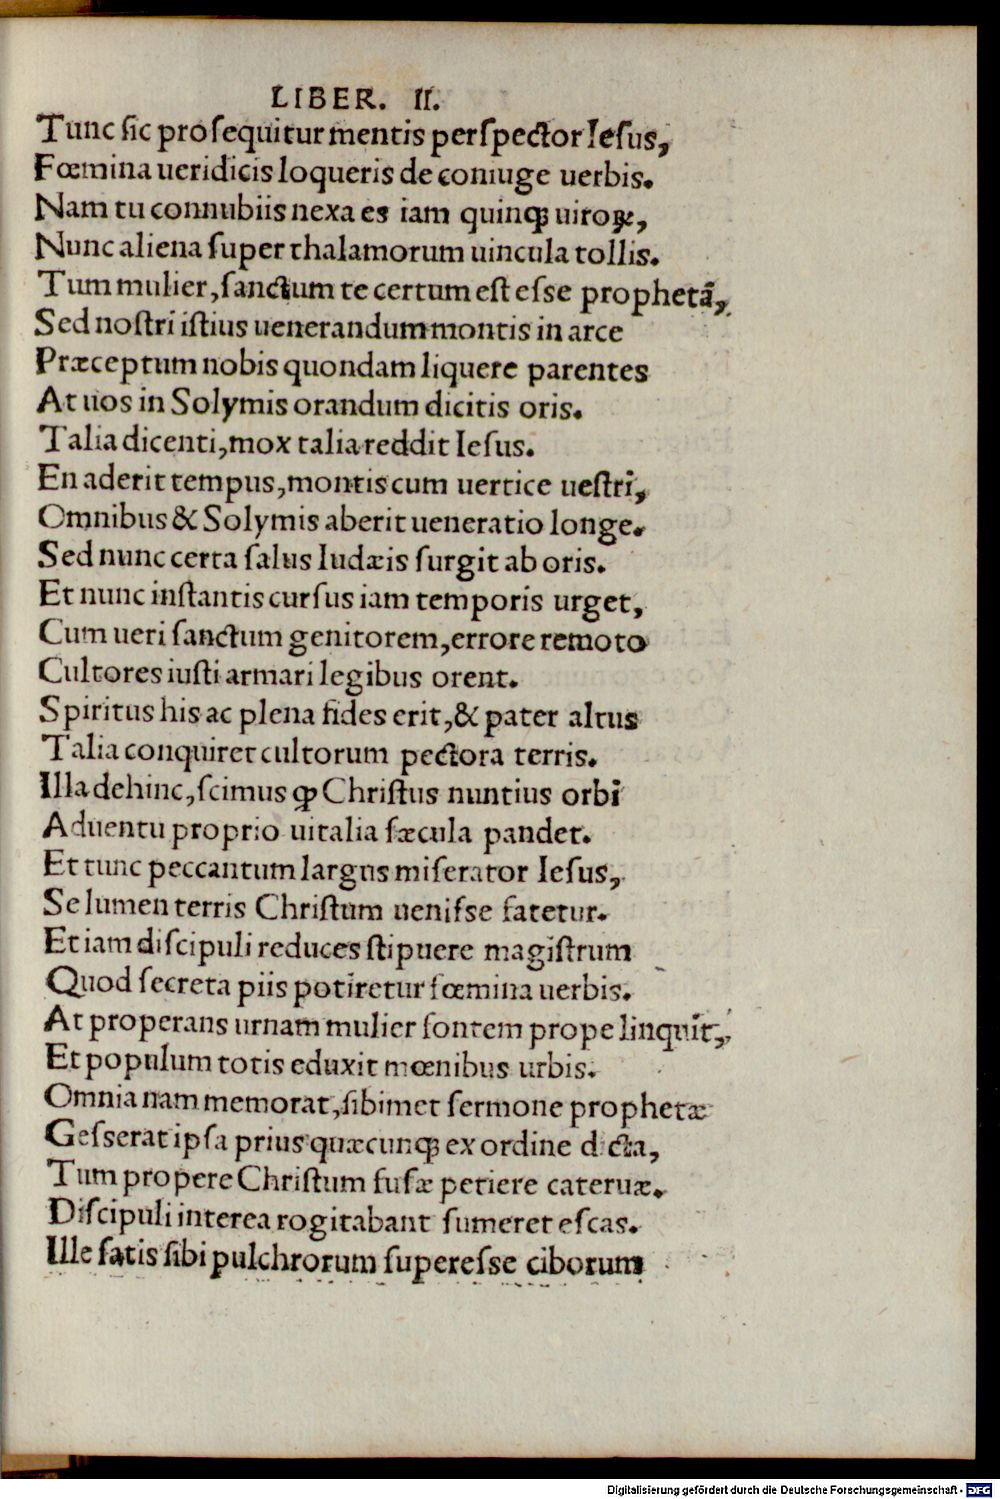 LIBER. II.
Tunc ſic proſequitur mentis perſpector Ieſus,
Fœmina ueridicis loqueris de coniuge uerbis.
Nam tu connubiis nexa es iam quinqꝫ uiroꝝ,
Nunc aliena ſuper thalamorum uincula tollis.
Tum mulier, ſanctum te certum eſt eſse prophetā,
Sed noſtri iſtius uenerandum montis in arce
Præceptum nobis quondam liquere parentes
At uos in Solymis orandum dicitis oris.
Talia dicenti, mox talia reddit Ieſus.
En aderit tempus, montis cum uertice ueſtri,
Omnibus & Solymis aberit ueneratio longe.
Sed nunc certa ſalus Iudæis ſurgit ab oris.
Et nunc inſtantis curſus iam temporis urget,
Cum ueri ſanctum genitorem, errore remoto
Cultores iuſti armari legibus orent.
Spiritus his ac plena fides erit, & pater altus
Talia conquiret cultorum pectora terris.
Illa dehinc, ſcimus ꝙ Chriſtus nuntius orbi
Aduentu proprio uitalia ſæcula pandet.
Et tunc peccantum largus miſerator Ieſus,
Se lumen terris Chriſtum ueniſse fatetur.
Et iam diſcipuli reduces ſtipuere magiſtrum
Quod ſecreta piis potiretur fœmina uerbis.
At properans urnam mulier fontem prope linquit,
Et populum totis eduxit mœnibus urbis.
Omnia nam memorat, ſibimet ſermone prophetæ
Geſserat ipſa prius quæcunqꝫ ex ordine dicta,
Tum propere Chriſtum fuſæ petiere cateruæ.
Diſcipuli interea rogitabant ſumeret eſcas.
Ille ſatis ſibi pulchrorum ſupereſse ciborum
Digitalisierung gefördert durch die Deutsche Forschungsgemeinschaft - DFG